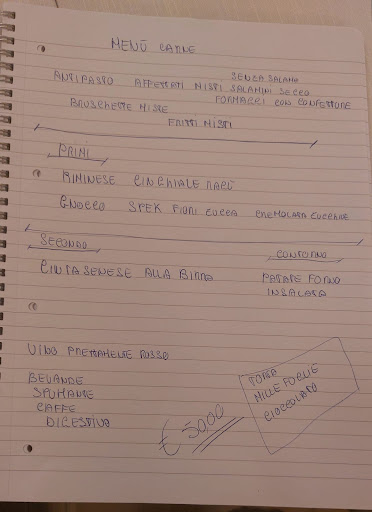 MENÙ CARNE
SENZA SALAME
ANTIPASTO AFFETTATI MISTI SALAMINI SECCO
FORMAGGI CON CONFETTURE
BRUSCHETTE MISTE
FRITTI MISTI
PRIMI
RIMINESE CINGHIALE
GNOCCO SPEK FIORI ZUCCA
SECONDO
CONTORNO
CINTA SENESE ALLA BIRRA
PATATE FORNO
INSALATA
VINO ROSSO
BEVANDE
SPUMANTE
CAFFE
DIGESTIVO
€ 50,00
TORTA
MILLE FOGLIE
CIOCCOLATO